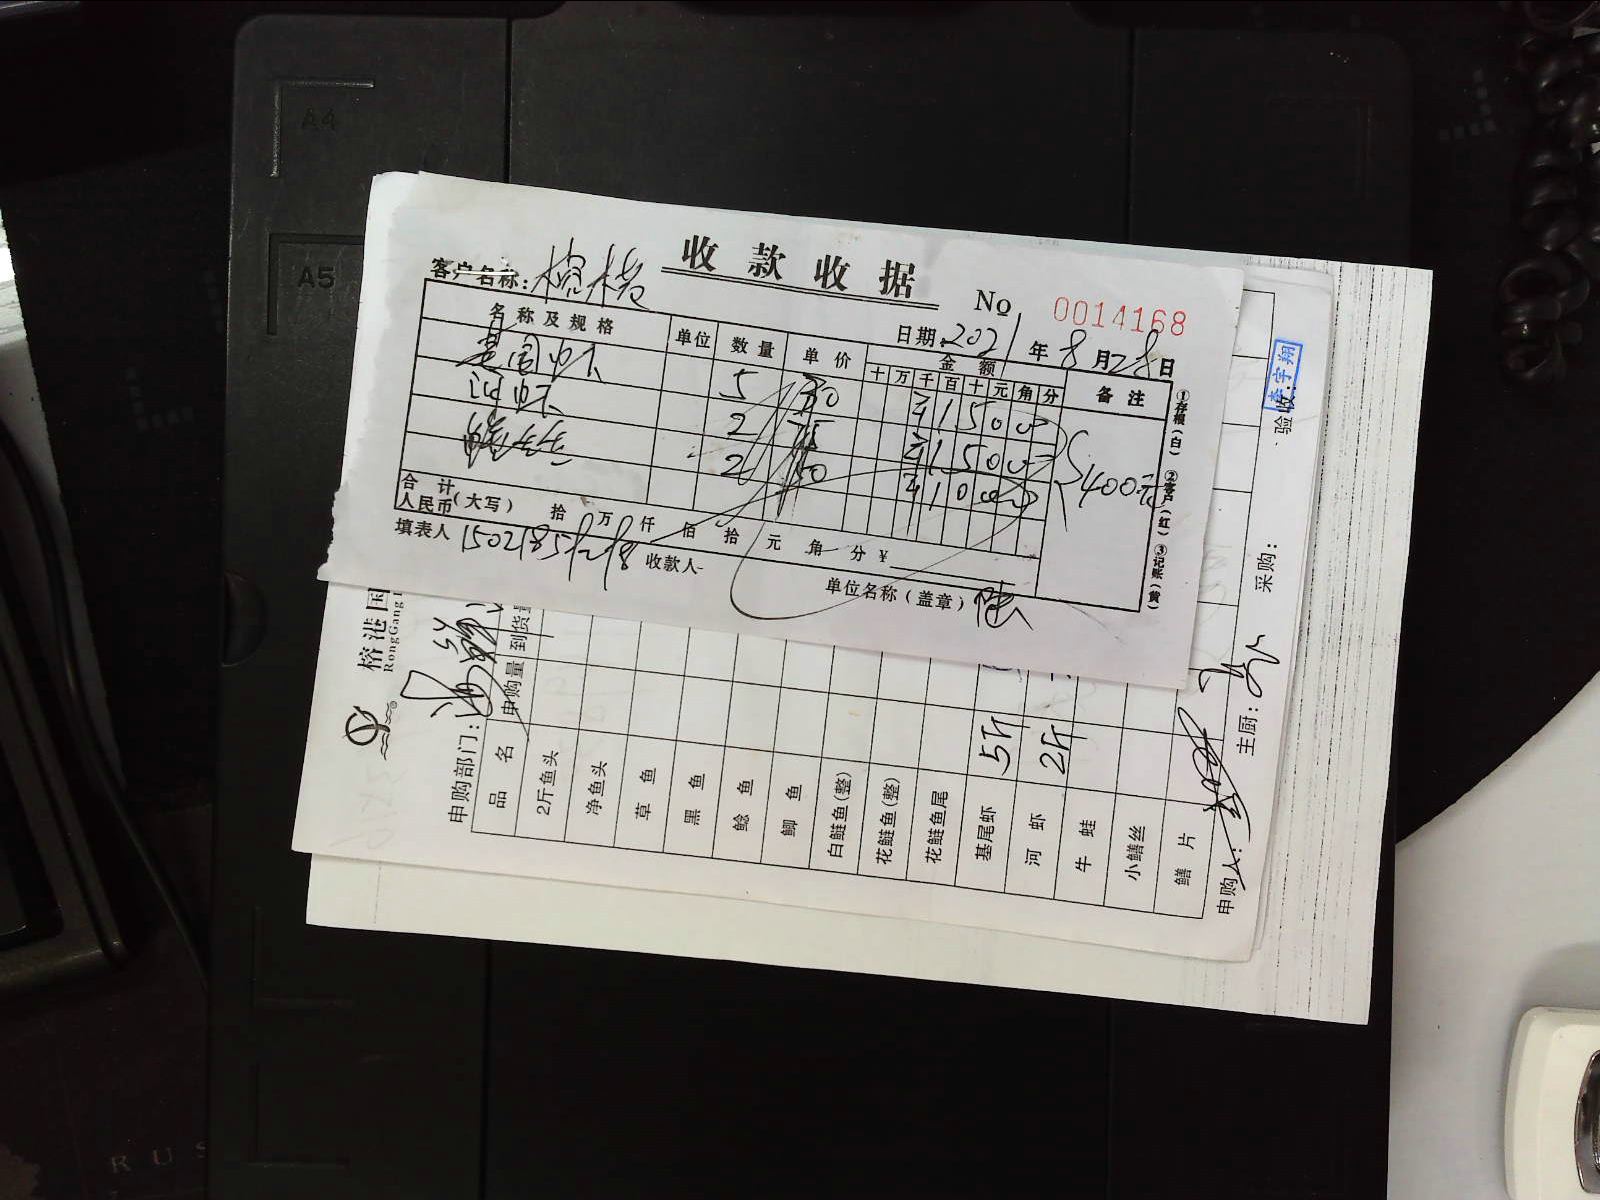 A4
A5
收款收据
客户名称:
No 0014168
日期 2021 年 8 月 28 日
名称及规格 单位 数量 单价 金额 备注
十 万 千 百 十 元 角 分
基围虾 5 30 ¥ 1 5 0 0 0
河虾 2 75 ¥ 1 5 0 0 0
2 50 ¥ 1 0 0 0 0
400元
合计
人民币(大写) 拾 万 仟 佰 拾 元 角 分 ¥
填表人 收款人
单位名称(盖章)
①存根(白) ②客户(红) ③记账(黄)
榕港国
RongGang
申购部门:
品名 申购量 到货量
2斤鱼头
净鱼头
草鱼
黑鱼
鲶鱼
鲫鱼
白鲢鱼(整)
花鲢鱼(整)
花鲢鱼尾
基尾虾 5斤
河虾 2斤
牛蛙
小鳝丝
鳝片
申购人: 主厨: 采购: 验收:
李宇翔
RUS